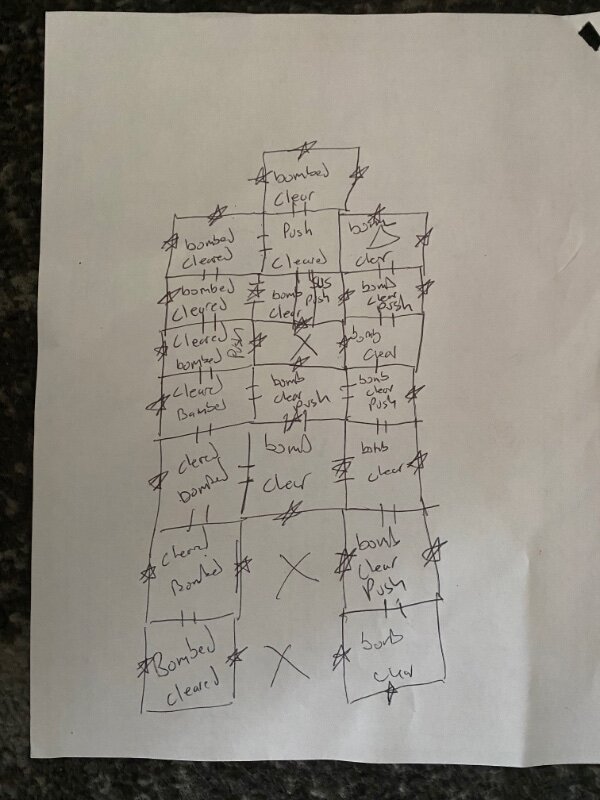 bombed
clear
bombed
cleared
Push
Cleared
bomb
clear
bombed
cleared
bomb
clear
SUS
Push
bomb
clear
Push
Cleared
bombed
Push
X
bomb
Clear
Cleared
Bombed
bomb
clear
Push
bomb
clear
Push
Bombed
bomb
clear
bomb
clear
Bombed
X
bomb
Clear
Push
Bombed
cleared
X
bomb
clear